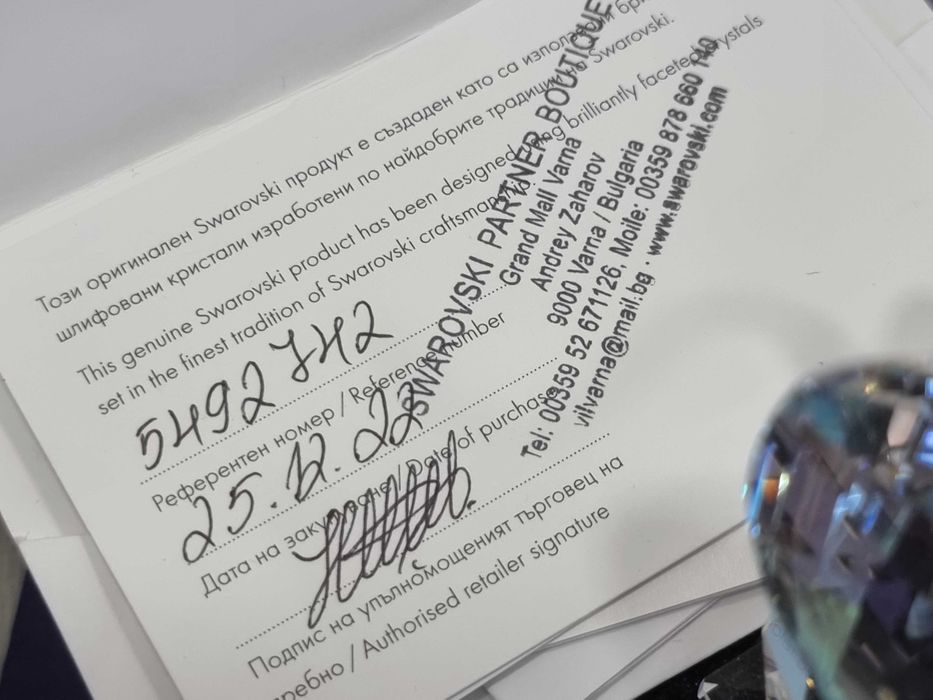 Този оригинален Swarovski продукт е създаден като са използвани
шлифовани кристали изработени по найдобрите традиции на Swarovski.
This genuine Swarovski product has been designed using brilliantly faceted crystals
set in the finest tradition of Swarovski craftsmanship.
5492742
Референтен номер / Reference number
25.12.22
Дата на закупуване / Date of purchase
Подпис на упълномощеният търговец на
дребно / Authorised retailer signature
SWAROVSKI PARTNER BOUTIQUE
Grand Mall Varna
Andrey Zaharov
9000 Varna / Bulgaria
Tel: 00359 52 671126, Molte: 00359 878 660 140
vilvarna@mail.bg · www.swarovski.com